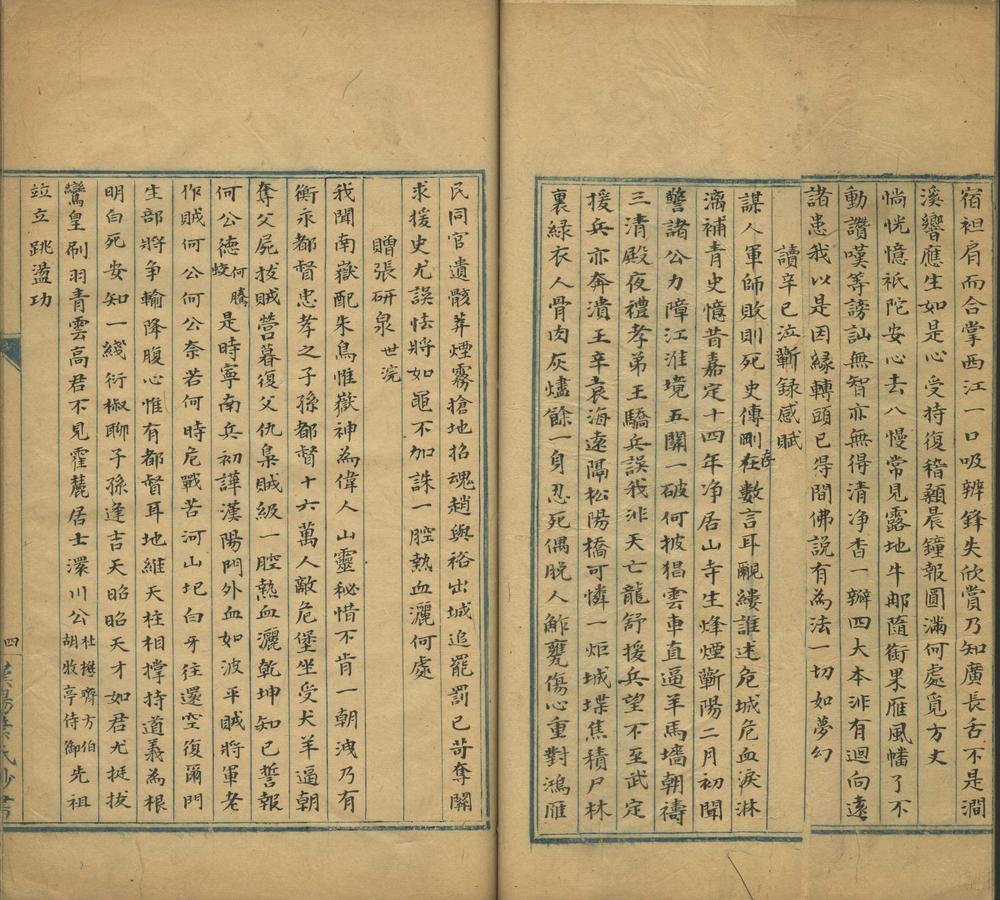 宿袒肩而合掌西江一口吸辨鋒失欣賞乃知廣長舌不是澗
溪響應生如是心受持復稽顙晨鐘報圓滿何處覓方丈
惝恍憶祇陀安心去八慢常見露地牛郍隨銜果雁風幡了不
動讚嘆等謗訕無智亦無得清净香一瓣四大本非有迴向遠
諸恚我以是因緣轉頭已得間佛説有為法一切如夢幻
讀辛巳泣蘄録感賦
謀人軍師敗則死史傳劘在數言耳覼縷誰述危城危血淚淋
存
漓補青史憶昔嘉定十四年净居山寺生烽煙蘄陽二月初聞
警諸公力障江淮境五關一破何披猖雲車直逼羊馬墻朝禱
三清殿夜禮孝弟王驕兵誤我非天亡龍舒援兵望不至武定
援兵亦奔潰王辛袁海遠隔松陽橋可憐一炬城堞焦積尸林
裏緑衣人骨肉灰燼餘一身忍死偶脫人鮓甕傷心重對鴻雁
民同官遺骸葬煙霧搶地招魂趙與裕出城追罷罰已苛奪關
求援史尤誤怯將如黽不加誅一腔熱血灑何處
贈張研泉世浣
我聞南嶽配朱鳥惟嶽神為偉人山靈秘惜不肯一朝洩乃有
衡永都督忠孝之子孫都督十六萬人敵危堡坐受犬羊逼朝
奪父屍拔賊營暮復父仇梟賊級一腔熱血灑乾坤知己誓報
何公德何騰蛟是時寧南兵初譁漢陽門外血如波平賊將軍老
作賊何公何公奈若何時危戰苦河山圮白牙往還空復爾門
生部將争輸降腹心惟有都督耳地維天柱相撐持道義為根
明白死安知一綫衍椒聊子孫逢吉天昭昭天才如君尤挺拔
鸞皇刷羽青雲高君不見霍麓居士澴川公杜樾齊方伯胡牧亭侍御先祖
竝立跳盪功
四
漢陽葉氏鈔書